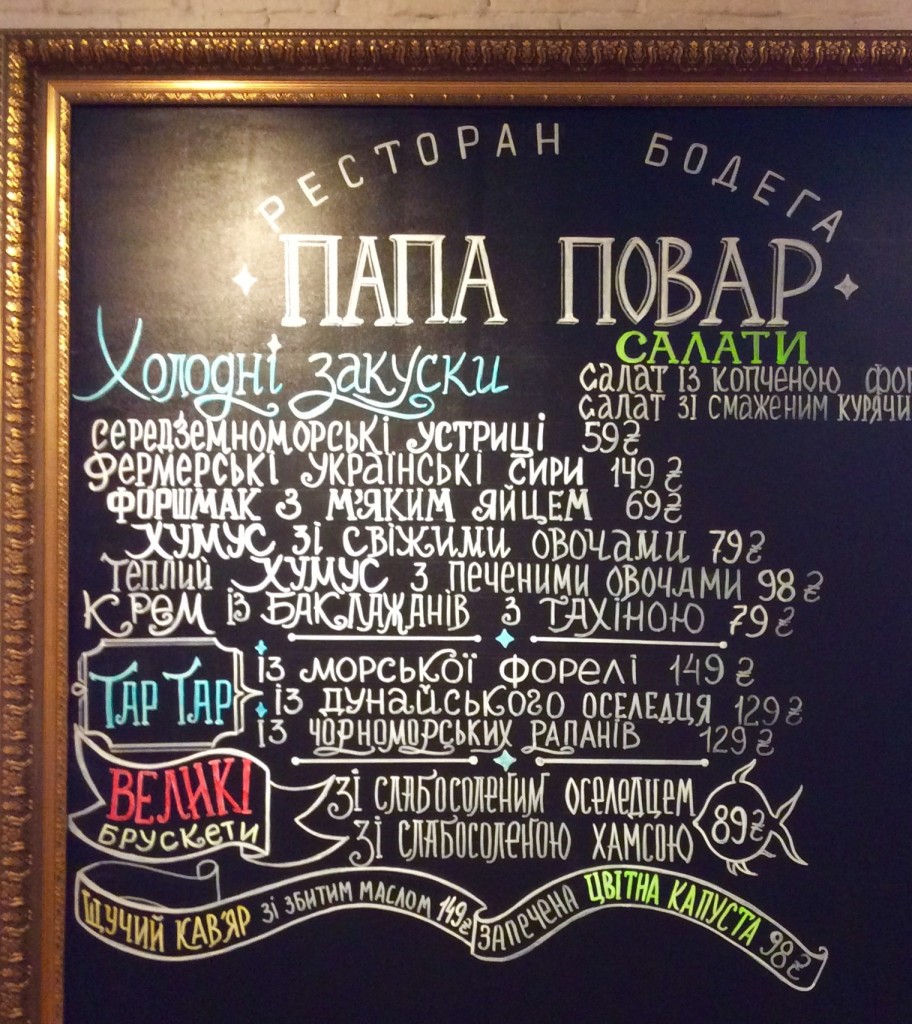 РЕСТОРАН БОДЕГА
ПАПА ПОВАР
Холодні закуски
СЕРЕДЗЕМНОМОРСЬКІ УСТРИЦІ 59₴
ФЕРМЕРСЬКІ УКРАЇНСЬКІ СИРИ 149₴
ФОРШМАК З М'ЯКИМ ЯЙЦЕМ 69₴
ХУМУС ЗІ СВІЖИМИ ОВОЧАМИ 79₴
ТЕПЛИЙ ХУМУС З ПЕЧЕНИМИ ОВОЧАМИ 98₴
КРЕМ ІЗ БАКЛАЖАНІВ З ТАХІНОЮ 79₴
САЛАТИ
САЛАТ ІЗ КОПЧЕНОЮ
САЛАТ ЗІ СМАЖЕНИМ
ТАР ТАР
ІЗ МОРСЬКОЇ ФОРЕЛІ 149₴
ІЗ ДУНАЙСЬКОГО ОСЕЛЕДЦЯ 129₴
ІЗ ЧОРНОМОРСЬКИХ РАПАНІВ 129₴
ВЕЛИКІ
БРУСКЕТИ
ЗІ СЛАБОСОЛЕНИМ ОСЕЛЕДЦЕМ
ЗІ СЛАБОСОЛЕНОЮ ХАМСОЮ
89₴
ЩУЧИЙ КАВ'ЯР ЗІ ЗБИТИМ МАСЛОМ 149₴
ЗАПЕЧЕНА ЦВІТНА КАПУСТА 98₴